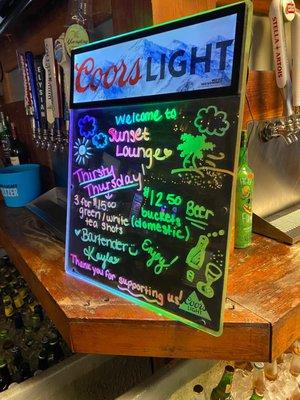 Coors LIGHT
Welcome to
Sunset
Lounge
Thirsty
Thursday!
3 for $15.00
green/white
tea shots
$12.50
buckets Beer
(domestic)
Bartender
Kayla
Enjoy!
Thank you for supporting us
Coors
LIGHT
STELLA ARTOIS